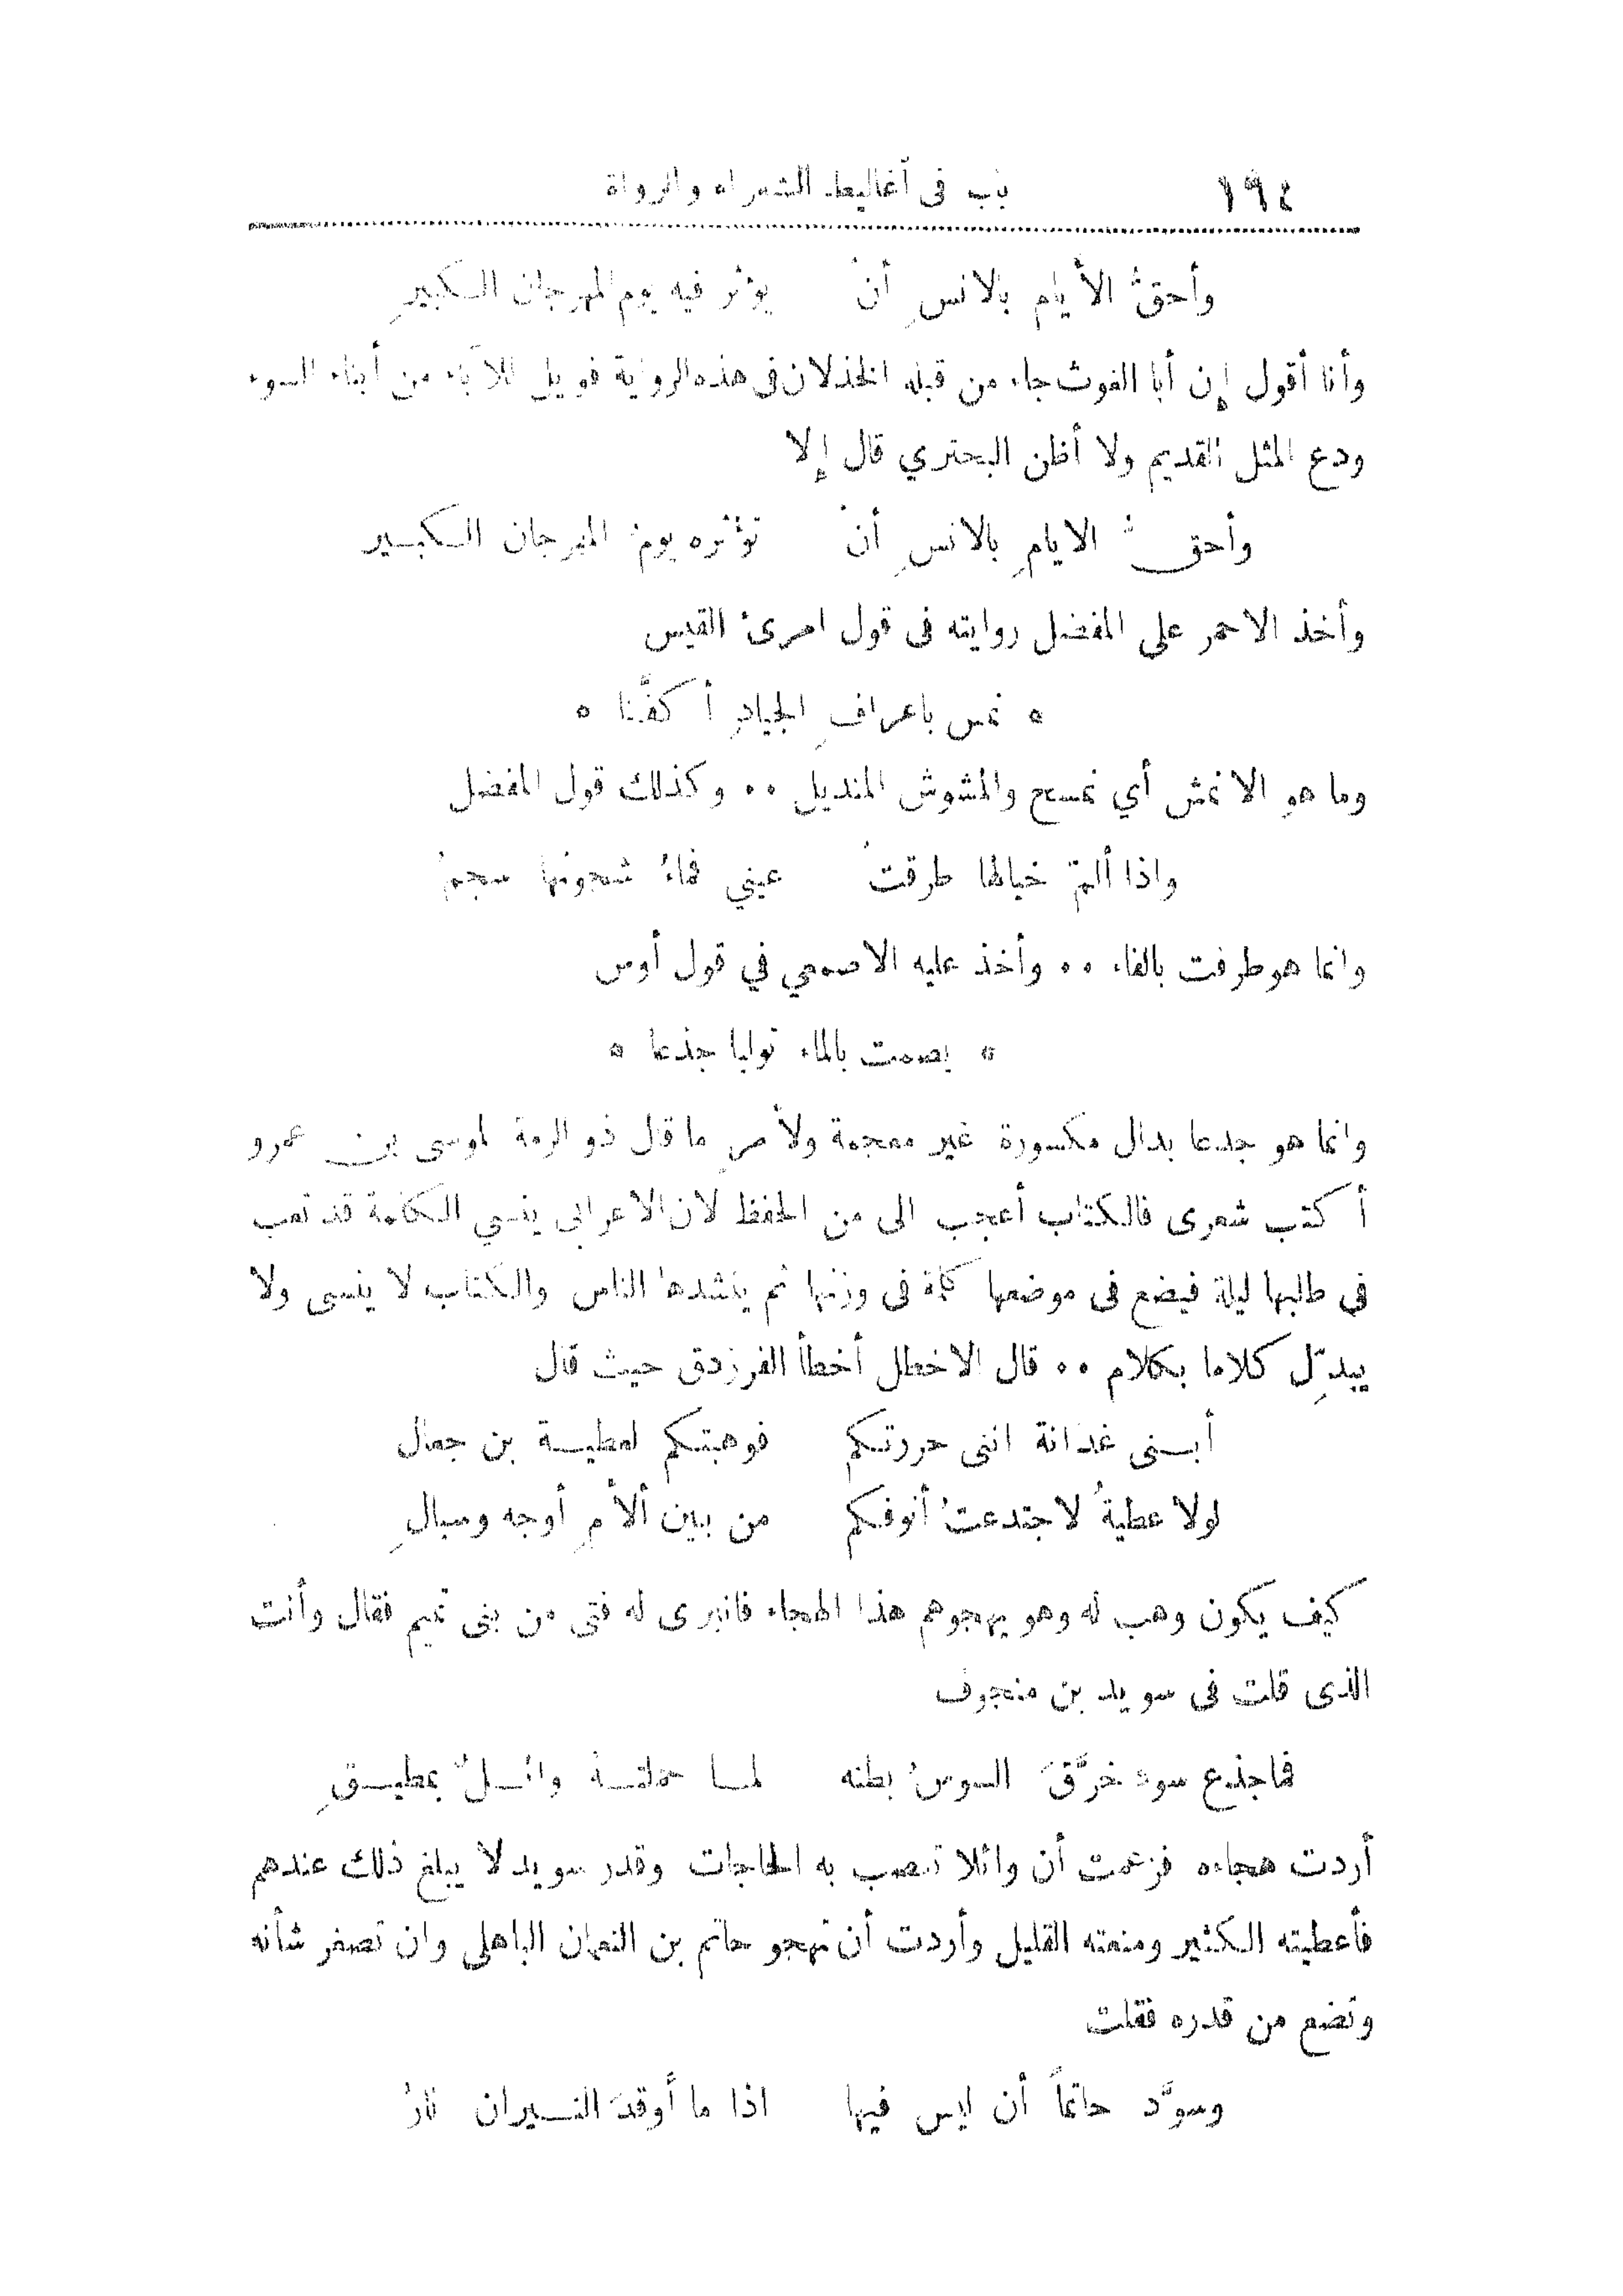 ١٩٤ باب فى أغاليط الشعراء والرواة
وأحقُّ الأيام بالانسِ أنْ يؤثر فيه يوم المهرجان الكبيرِ
وأنا أقول إن أبا الغوث جاء من قبله الخذلان فى هذه الرواية فويل للآباء من أبناء السوء
ودع المثل القديم ولا أظن البحتري قال إلا
وأحقُّ الايامِ بالانسِ أنْ تؤثره يومُ المهرجان الكبير
وأخذ الاحمر على المفضل روايته فى قول امرئ القيس
* نمس باعرافِ الجيادِ أكفَّنا *
وما هو الا نمش أي نمسح والمشوش المنديل ٠٠ وكذلك قول المفضل
واذا ألمّ خيالها طرقتْ عيني فماءُ شجونها سجمُ
وانما هو طرفت بالفاء ٠٠ وأخذ عليه الاصمعي في قول أوس
* يصمت بالماء تولبا جذعا *
وانما هو جدعا بدال مكسورة غير معجمة ولأمرِ ما قال ذو الرمة لموسى بن عمرو
أكتب شعرى فالكتاب أعجب الى من الحفظ لان الاعرابى ينسي الكلمة قد تعب
فى طلبها ليلة فيضع فى موضعها كلمة فى وزنها ثم ينشدها الناس والكتاب لا ينسى ولا
يبدِّل كلاما بكلام ٠٠ قال الاخطل أخطأ الفرزدق حيث قال
أبنى غدانة اننى حررتكم فوهبتكم لعطية بن جعال
لولا عطيةُ لاجتدعتُ أنوفكم من بين ألأمِ أوجه وسبالِ
كيف يكون وهب له وهو يهجوهم هذا الهجاء فانبرى له فتى من بنى تميم فقال وأنت
الذى قلت فى سويد بن منجوف
فما جذع سوء خرَّقَ السوسُ بطنه لما حملته وائلٌ بمطيقِ
أردت هجاءه فزعمت أن وائلا تعصب به الحاجات وقدر سويد لا يبلغ ذلك عندهم
فأعطيته الكثير ومنعته القليل وأردت أن تهجو حاتم بن النعمان الباهلى وان تصغر شأنه
وتضع من قدره فقلت
وسوَّد حاتماً أن ليس فيها اذا ما أُوقدَ النيران نارُ